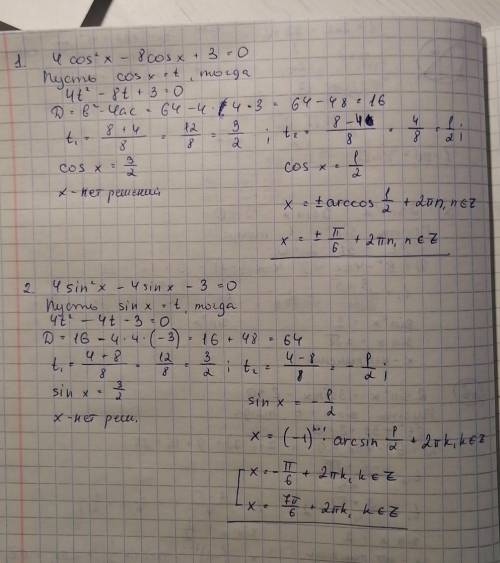 1. 4 cos²x − 8cosx + 3 = 0
Пусть cosx = t, тогда
4t² − 8t + 3 = 0
D = b² − 4ac = 64 − 4 · 4 · 3 = 64 − 48 = 16
t₁ = (8 + 4)/8 = 12/8 = 3/2 ; t₂ = (8 − 4)/8 = 4/8 = 1/2 ;
cos x = 3/2
x − нет решений
cos x = 1/2
x = ± arccos 1/2 + 2πn, n ∈ Z
x = ± π/6 + 2πn, n ∈ Z
2. 4 sin²x − 4 sinx − 3 = 0
Пусть sinx = t, тогда
4t² − 4t − 3 = 0
D = 16 − 4 · 4 · (−3) = 16 + 48 = 64
t₁ = (4 + 8)/8 = 12/8 = 3/2 ; t₂ = (4 − 8)/8 = − 1/2 ;
sin x = 3/2
x − нет реш.
sin x = − 1/2
x = (−1)ᵏ⁺¹ · arcsin 1/2 + 2πk, k ∈ Z
x = − π/6 + 2πk, k ∈ Z
x = 7π/6 + 2πk, k ∈ Z